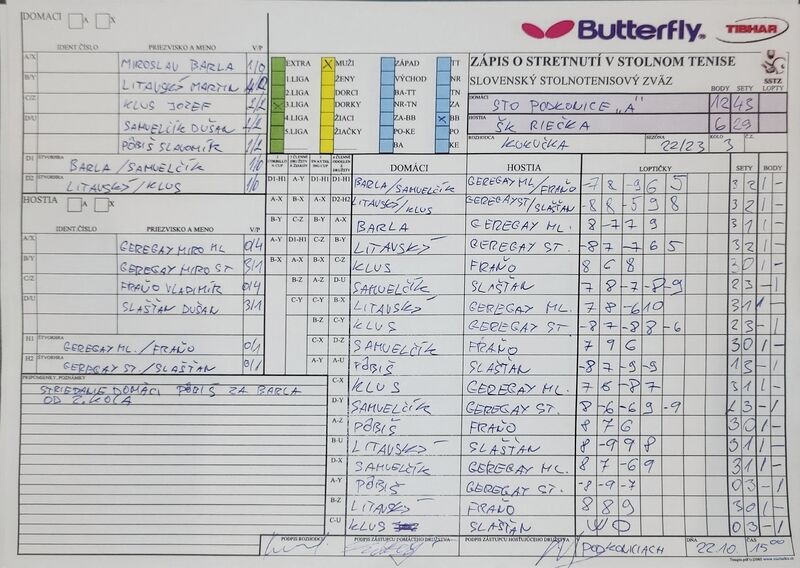 DOMÁCI A X
Butterfly. TIBHAR
IDENT.ČÍSLO PRIEZVISKO A MENO V/P
ZÁPIS O STRETNUTÍ V STOLNOM TENISE
SLOVENSKÝ STOLNOTENISOVÝ ZVÄZ
SSTZ
A/X MIROSLAV BARLA 1/0
B/Y LITAVSKÝ MARTIN
C/Z KLUS JOZEF 2/2
D/U SAMUELČÍK DUŠAN 2/2
PÔBIŠ SLAVOMÍR 1/2
EXTRA X MUŽI ZÁPAD TT
1.LIGA ŽENY VÝCHOD NR
2.LIGA DORCI BA-TT TN
X 3.LIGA DORKY NR-TN ZA
4.LIGA ŽIACI ZA-BB X BB
5.LIGA ŽIAČKY PO-KE PO
BA KE
BODY SETY LOPTY
DOMÁCI STO PODKONICE „A" 12 43
HOSTIA ŠK RIEČKA 6 29
ROZHODCA KUKUČKA SEZÓNA 22/23 KOLO 3 Č.Z.
D1 ŠTVORHRA BARLA/SAMUELČÍK 1/0
D2 ŠTVORHRA LITAVSKÝ/KLUS 1/0
HOSTIA A X
IDENT.ČÍSLO PRIEZVISKO A MENO V/P
A/X GEREGAY MIRO ML 0/4
B/Y GEREGAY MIRO ST 3/1
C/Z FRAŇO VLADIMÍR 0/4
D/U SLAŠŤAN DUŠAN 3/1
H1 ŠTVORHRA GEREGAY ML./FRAŇO 0/1
H2 ŠTVORHRA GEREGAY ST./SLAŠŤAN 0/1
PRIPOMIENKY, POZNÁMKY
STRIEDANIE DOMÁCI PÔBIŠ ZA BARLA
OD 2.KOLA
DOMÁCI HOSTIA LOPTIČKY SETY BODY
D1-H1 A-Y A-X D1-H1 BARLA/SAMUELČÍK GEREGAY ML/FRAŇO -7 8 -9 6 5 3 2 1 -
A-X B-X A-X D2-H2 LITAVSKÝ/KLUS GEREGAY ST/SLAŠŤAN -8 8 -5 9 8 3 2 1 -
B-Y C-Z B-Y A-X BARLA GEREGAY ML. 8 -7 7 9 3 1 1 -
A-Y D1-H1 C-Z B-Y LITAVSKÝ GEREGAY ST. -8 7 -7 6 5 3 2 1 -
B-X A-X B-X C-Z KLUS FRAŇO 8 6 8 3 0 1 -
B-Z A-Z D-U SAMUELČÍK SLAŠŤAN 7 8 -7 -8 -9 2 3 - 1
C-Y C-Y B-X LITAVSKÝ GEREGAY ML. 7 8 -6 10 3 1 1 -
B-Z C-Y KLUS GEREGAY ST. -8 7 -8 8 -6 2 3 - 1
C-X D-Z SAMUELČÍK FRAŇO 7 9 6 3 0 1 -
A-Y A-U PÔBIŠ SLAŠŤAN -8 7 -9 -9 1 3 - 1
C-X KLUS GEREGAY ML. 7 6 -8 7 3 1 1 -
D-Y SAMUELČÍK GEREGAY ST. 8 -6 -6 9 -9 2 3 - 1
A-Z PÔBIŠ FRAŇO 8 7 6 3 0 1 -
B-U LITAVSKÝ SLAŠŤAN 8 -9 9 8 3 1 1 -
D-X SAMUELČÍK GEREGAY ML. 8 7 -6 9 3 1 1 -
A-Y PÔBIŠ GEREGAY ST. -8 -9 -7 0 3 - 1
B-Z LITAVSKÝ FRAŇO 8 8 9 3 0 1 -
C-U KLUS SLAŠŤAN WO 0 3 - 1
PODPIS ROZHODCU PODPIS ZÁSTUPCU DOMÁCEHO DRUŽSTVA PODPIS ZÁSTUPCU HOSŤUJÚCEHO DRUŽSTVA V PODKONICIACH DŇA 22.10. ČAS 15 00